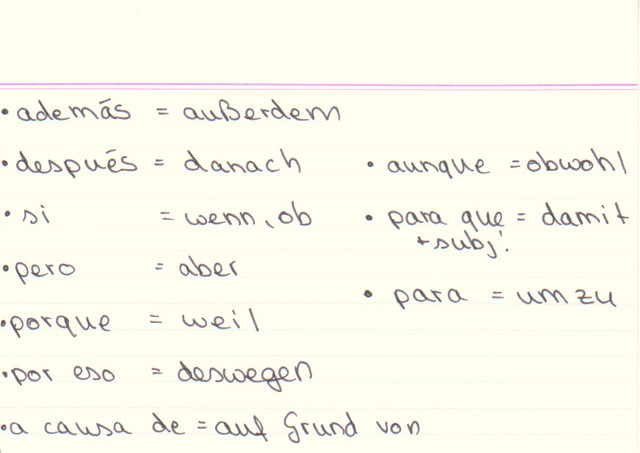 • además = außerdem
• después = danach
• si = wenn, ob
• pero = aber
• porque = weil
• por eso = deswegen
• a causa de = auf Grund von
• aunque = obwohl
• para que = damit
+ subj.
• para = um zu